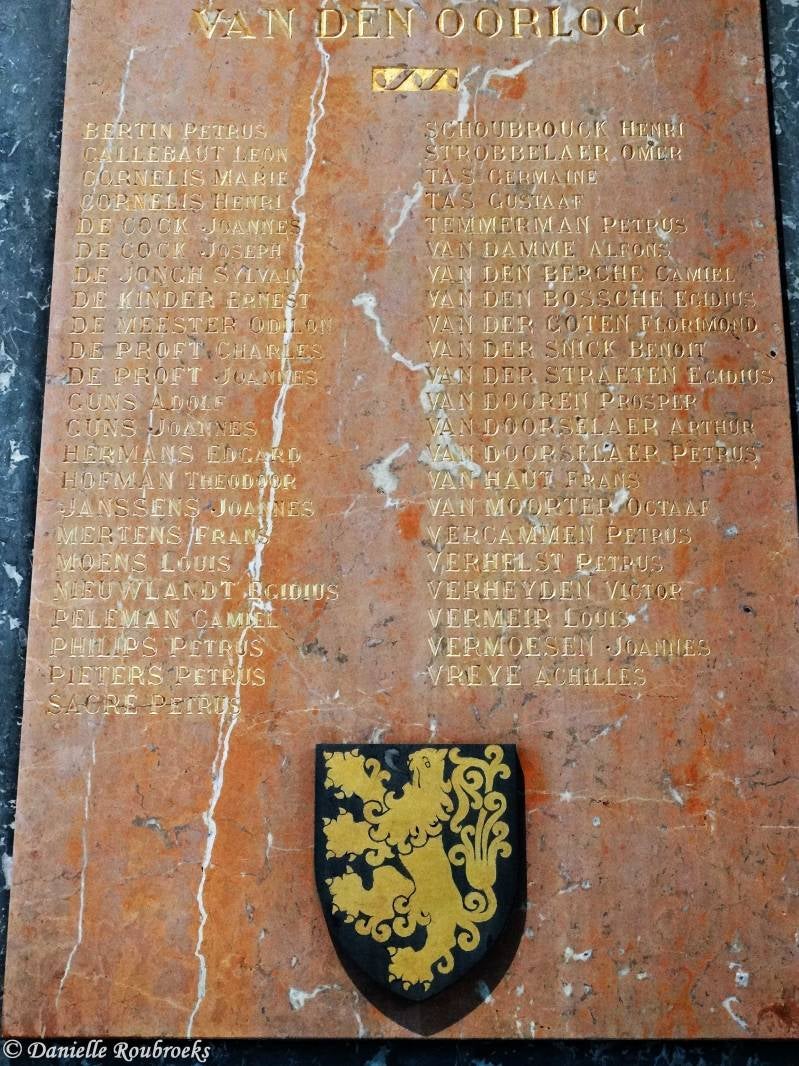 VAN DEN OORLOG
BERTIN PETRUS
CALLEBAUT LEON
CORNELIS MARIE
CORNELIS HENRI
DE COCK JOANNES
DE COCK JOSEPH
DE JONGH SYLVAIN
DE KINDER ERNEST
DE MEESTER ODILON
DE PROFT CHARLES
DE PROFT JOANNES
GUNS ADOLF
GUNS JOANNES
HERMANS EDGARD
HOFMAN THEODOOR
JANSSENS JOANNES
MERTENS FRANS
MOENS LOUIS
NIEUWLANDT EGIDIUS
PELEMAN CAMIEL
PHILIPS PETRUS
PIETERS PETRUS
SACRÉ PETRUS
SCHOUBROUCK HENRI
STROBBELAER OMER
TAS GERMAINE
TAS GUSTAAF
TEMMERMAN PETRUS
VAN DAMME ALFONS
VAN DEN BERGHE CAMIEL
VAN DEN BOSSCHE EGIDIUS
VAN DER GOTEN FLORIMOND
VAN DER SNICK BENOIT
VAN DER STRAETEN EGIDIUS
VAN DOOREN PROSPER
VAN DOORSELAER ARTHUR
VAN DOORSELAER PETRUS
VAN HAUT FRANS
VAN MOORTER OCTAAF
VERCAMMEN PETRUS
VERHELST PETRUS
VERHEYDEN VICTOR
VERMEIR LOUIS
VERMOESEN JOANNES
VREYE ACHILLES
© Danielle Roubroeks